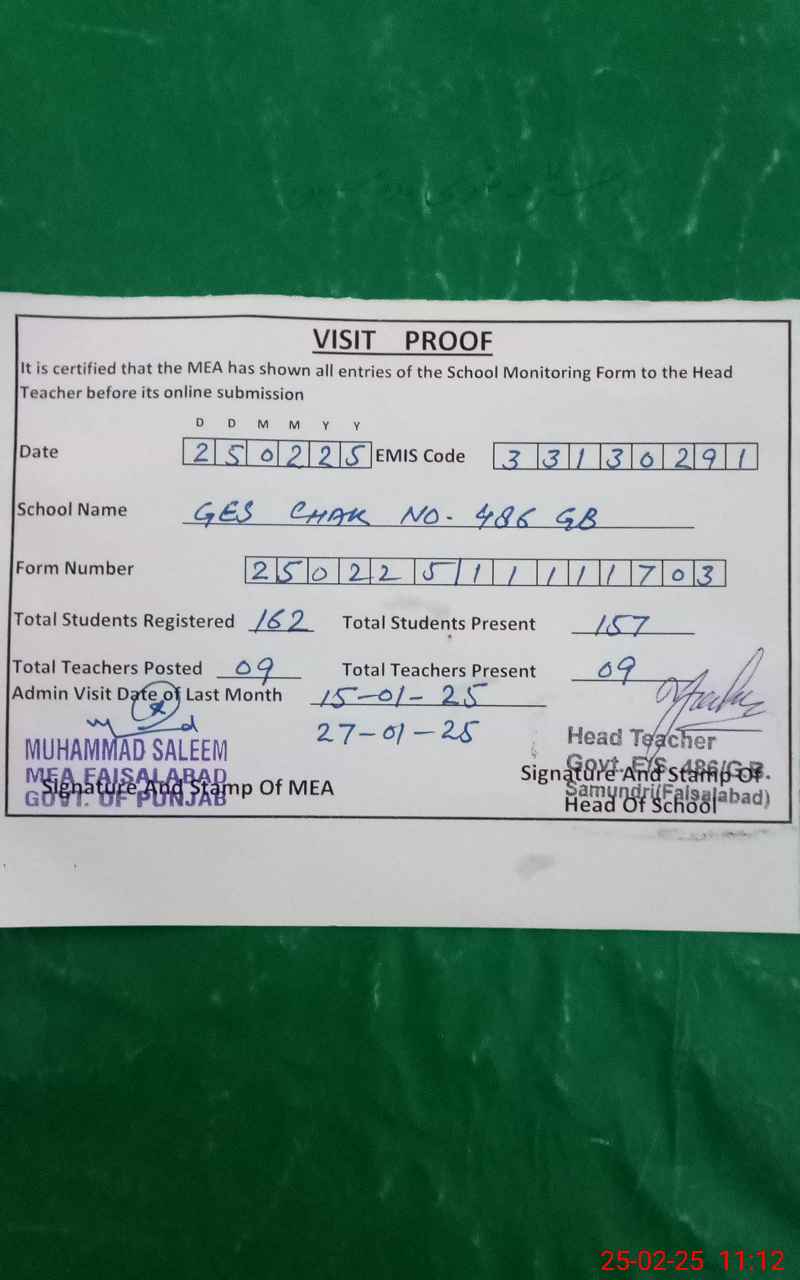 VISIT PROOF
It is certified that the MEA has shown all entries of the School Monitoring Form to the Head
Teacher before its online submission
D D M M Y Y
Date 250225 EMIS Code 33130291
School Name GES CHAK NO. 486 GB
Form Number 250225111111703
Total Students Registered 162 Total Students Present 157
Total Teachers Posted 09 Total Teachers Present 09
Admin Visit Date of Last Month 15-01-25
27-01-25
MUHAMMAD SALEEM
MEA FAISALABAD
GOVT. OF PUNJAB
Signature And Stamp Of MEA
Head Teacher
Govt. E/S 486/G.B.
Samundri(Faisalabad)
Signature And Stamp Of
Head Of School
25-02-25 11:12